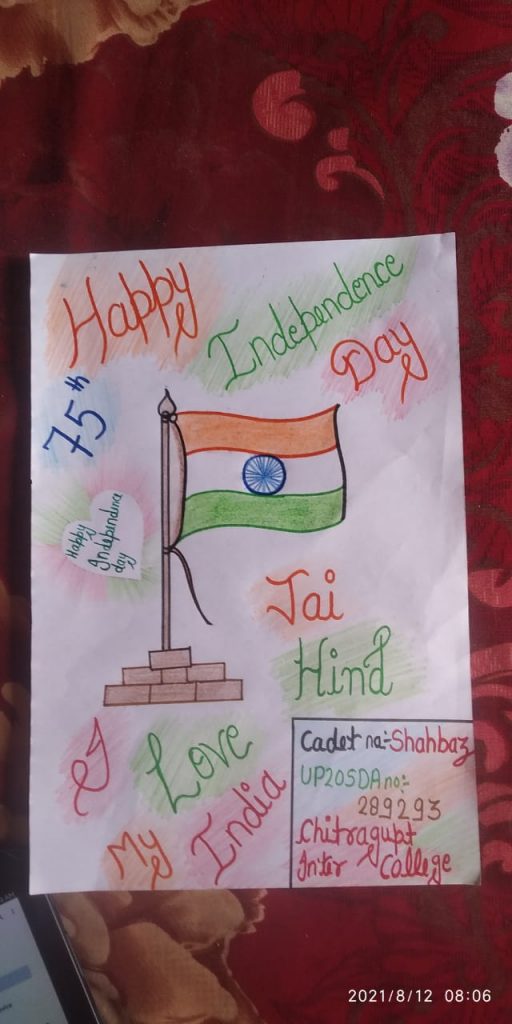 Happy
Independence
Day
75th
Happy
Independence
day
Jai
Hind
I
Love
My
India
Cadet na:-Shahbaz
UP20SDA no:-
289293
Chitragupt
Inter College
2021/8/12 08:06